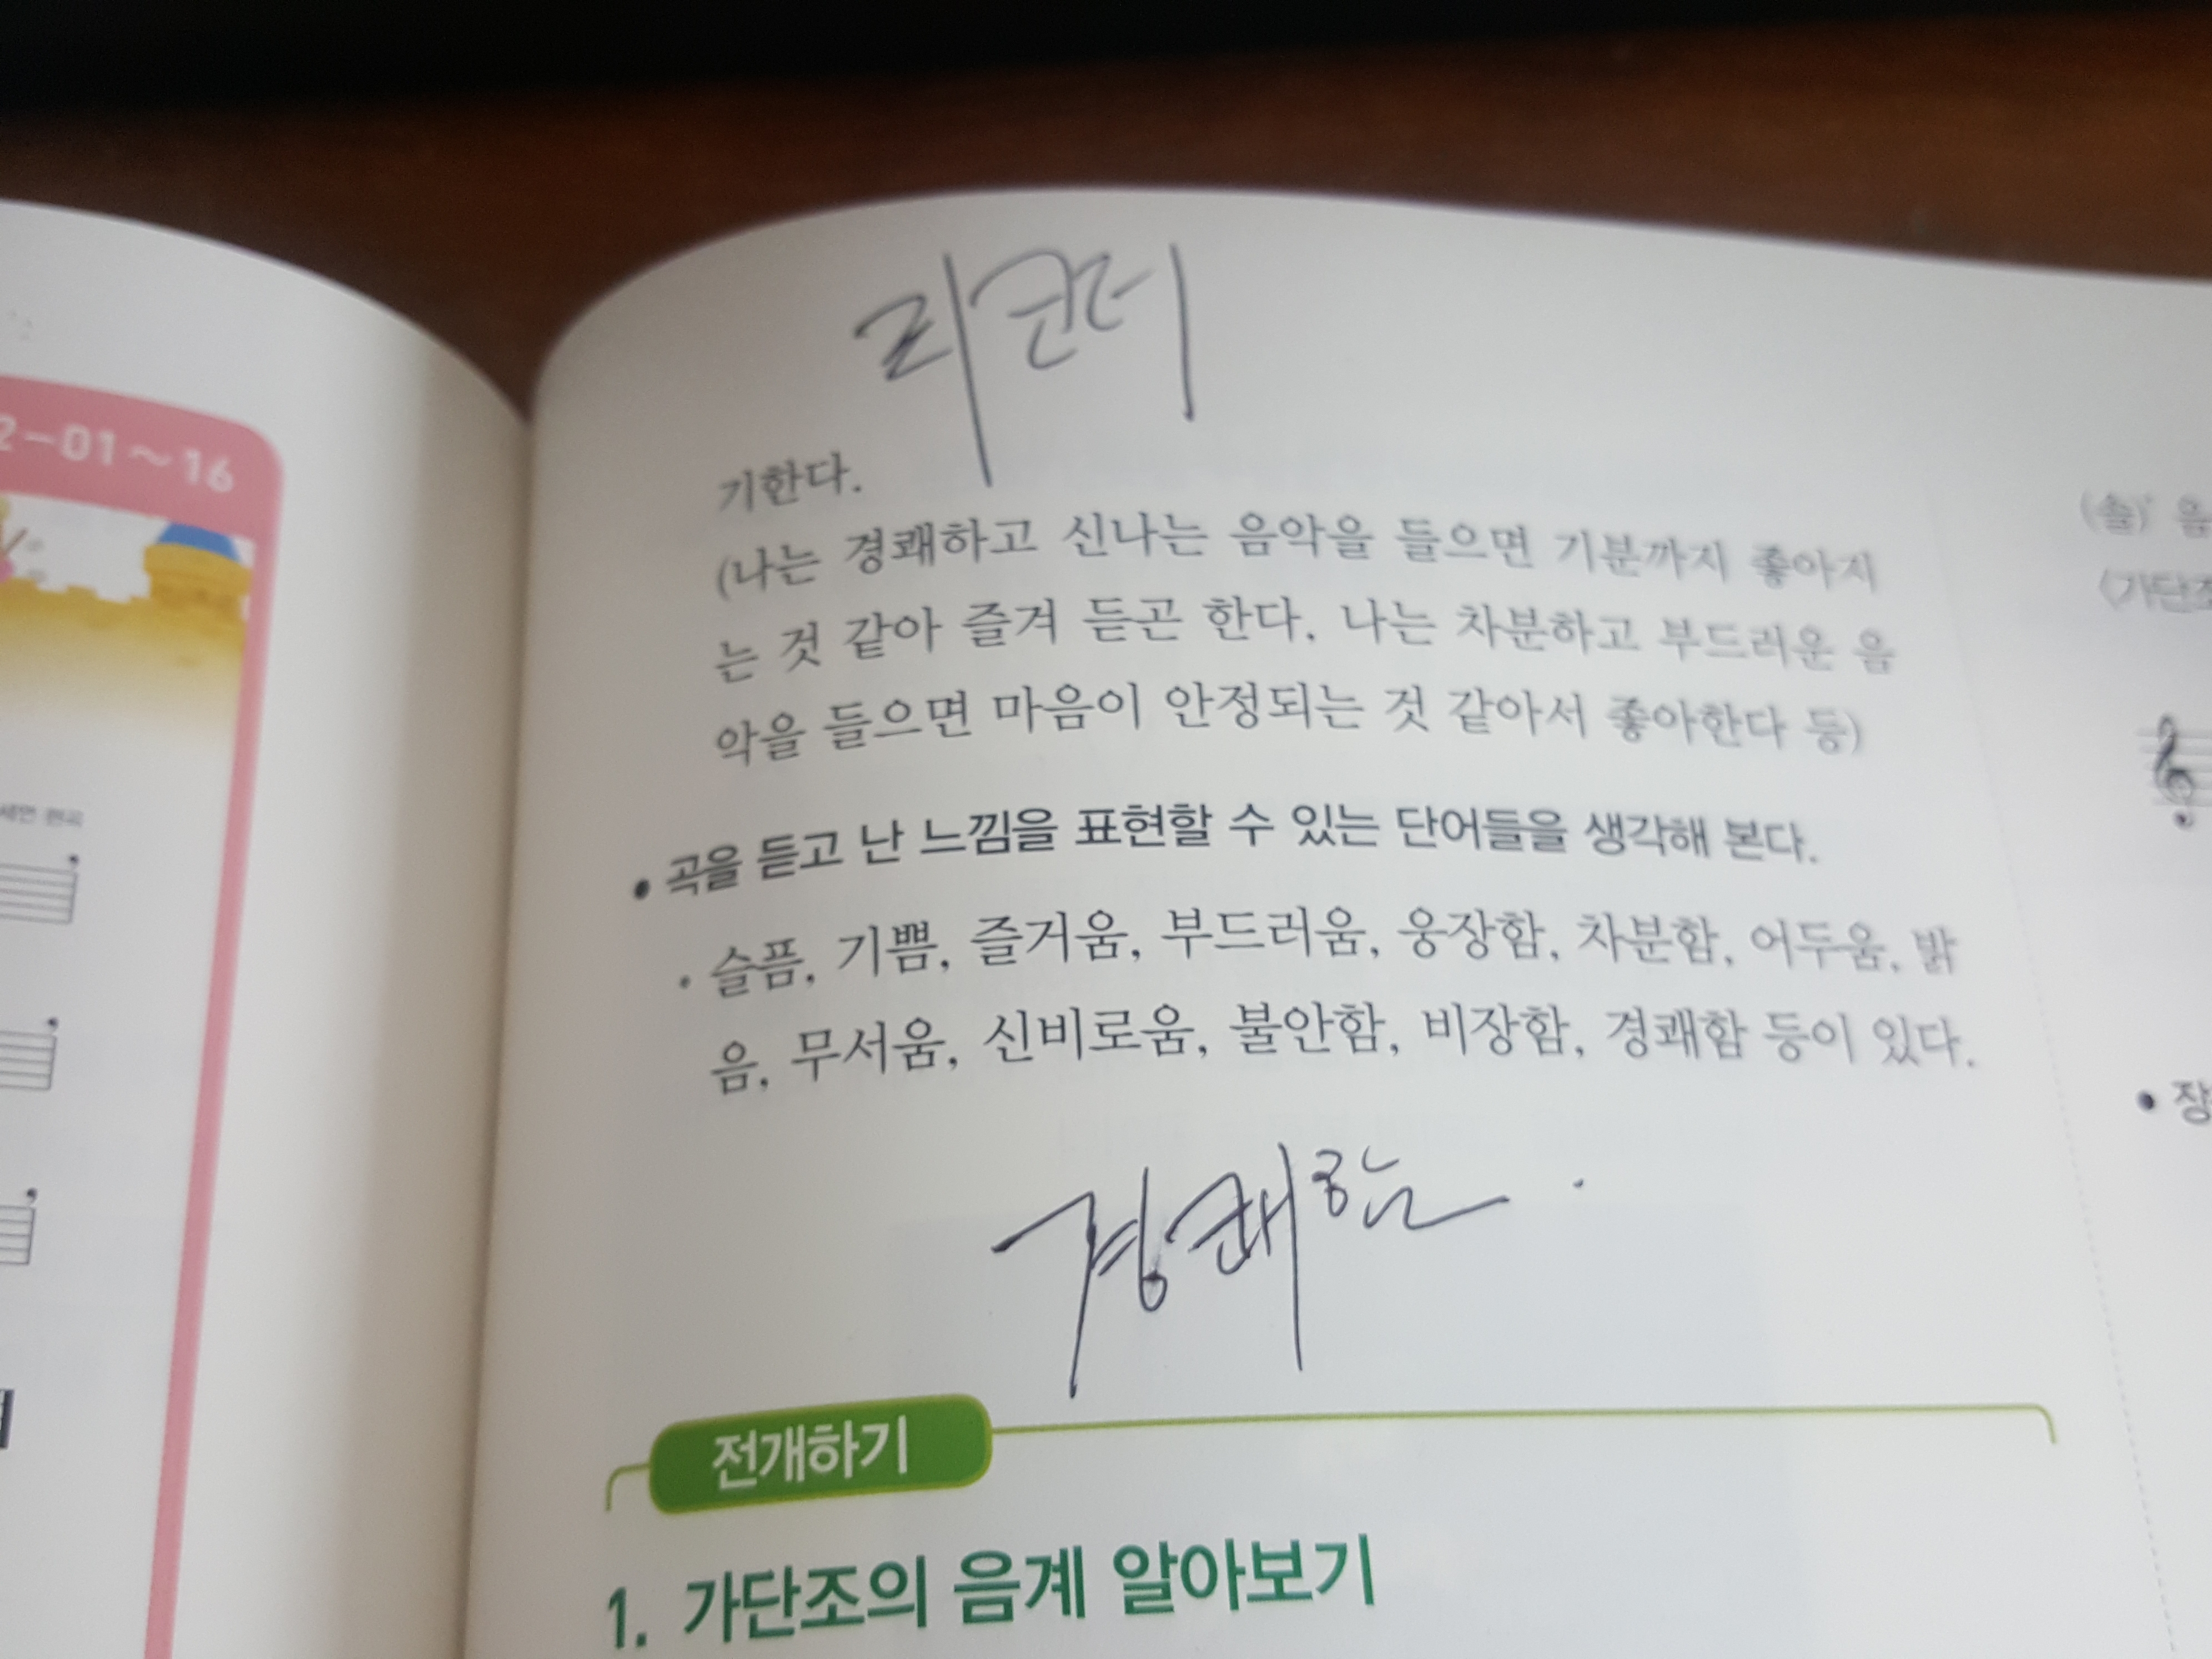 2-01~16
리코더
기한다.
(나는 경쾌하고 신나는 음악을 들으면 기분까지 좋아지
는 것 같아 즐겨 듣곤 한다. 나는 차분하고 부드러운 음
악을 들으면 마음이 안정되는 것 같아서 좋아한다 등)
• 곡을 듣고 난 느낌을 표현할 수 있는 단어들을 생각해 본다.
• 슬픔, 기쁨, 즐거움, 부드러움, 웅장함, 차분함, 어두움, 밝
음, 무서움, 신비로움, 불안함, 비장함, 경쾌함 등이 있다.
경쾌함.
전개하기
1. 가단조의 음계 알아보기
(솔)' 음
〈가단조
• 장